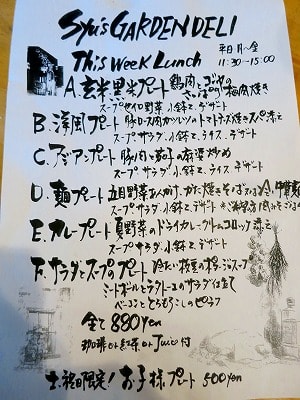 Syu's GARDEN DELI
This Week Lunch
平日 月〜金
11:30-15:00
A. 玄米黒米プレート 鶏肉とゴーヤの
梅肉焼き
スープ 野菜 小鉢 デザート
B. 洋風プレート 豚ロース肉 トマトチーズ焼き スパ添え
スープ サラダ 小鉢 ライス デザート
C. アジアンプレート 豚肉と茄子の麻婆炒め
スープ サラダ 小鉢 ライス デザート
D. 麺プレート 五目野菜あんかけ
スープ サラダ 小鉢 デザート
E. カレープレート 夏野菜のドライカレー クリームコロッケ添え
スープ サラダ 小鉢 デザート
F. サラダとスープのプレート 冷たい スープ
ミートボールと サラダ仕立て
ベーコンととうもろこしのピラフ
全て 880yen
珈琲 or 紅茶 or Juice 付
土・祝日限定! お子様プレート 500yen